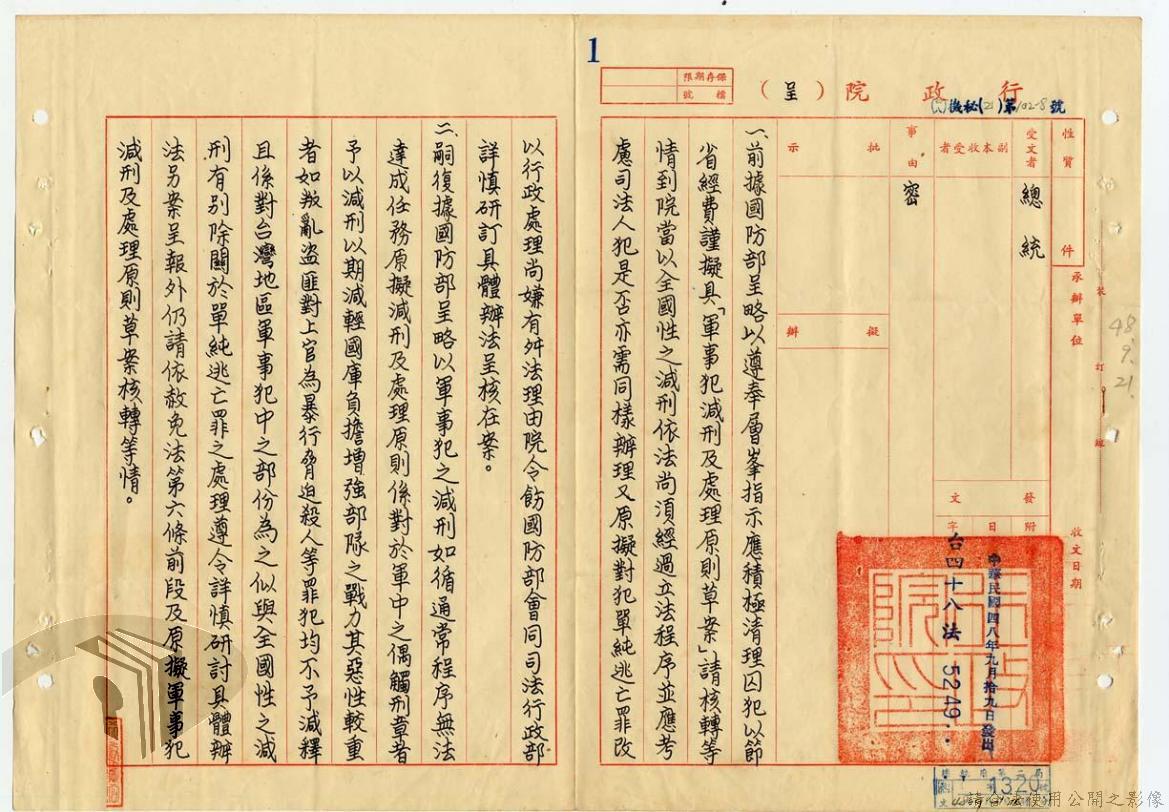 1
行政院（呈）
(六)機秘(21)第102-8號
保存期限
檔號
性質
件
受文者
總統
副本收受者
事由
密
批示
擬辦
發文
附
日
字
承辦單位
收文日期
裝
訂
線
48.9.21.
中華民國四八年九月拾九日發出
台四十八法 5249
行政院印
1320
一、前據國防部呈略以遵奉層峯指示應積極清理囚犯以節
省經費謹擬具「軍事犯減刑及處理原則草案」請核轉等
情到院當以全國性之減刑依法尚須經過立法程序並應考
慮司法人犯是否亦需同樣辦理又原擬對犯單純逃亡罪改
以行政處理尚嫌有舛法理由院令飭國防部會同司法行政部
詳慎研訂具體辦法呈核在案。
二、嗣復據國防部呈略以軍事犯之減刑如循通常程序無法
達成任務原擬減刑及處理原則係對於軍中之偶觸刑章者
予以減刑以期減輕國庫負擔增強部隊之戰力其惡性較重
者如叛亂盜匪對上官為暴行脅迫殺人等罪犯均不予減釋
且係對台灣地區軍事犯中之部份為之似與全國性之減
刑有別除關於單純逃亡罪之處理遵令詳慎研討具體辦
法另案呈報外仍請依赦免法第六條前段及原擬軍事犯
減刑及處理原則草案核轉等情。
請合法使用公開之影像